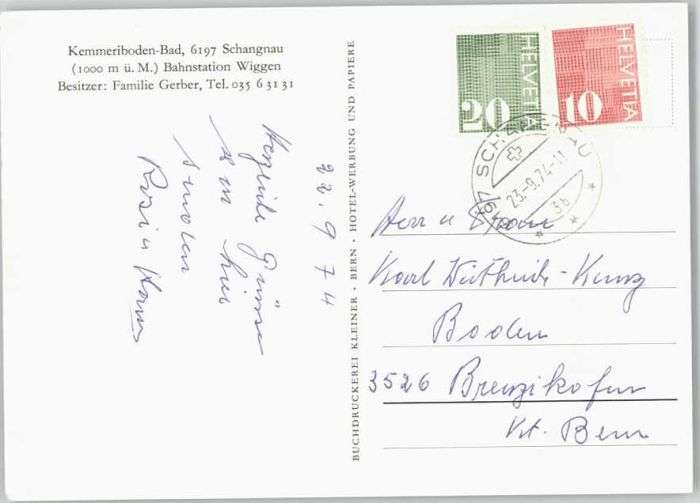 Kemmeriboden-Bad, 6197 Schangnau
(1000 m ü. M.) Bahnstation Wiggen
Besitzer: Familie Gerber, Tel. 035 6 31 31
22.9 74
Herzliche Grüsse
von hier
senden
Rosi u Hans
BUCHDRUCKEREI KLEINER · BERN · HOTEL-WERBUNG UND PAPIERE
HELVETIA
20
HELVETIA
10
6197 SCHANGNAU
23.-9.74-11
3b
Herr u Frau
Karl Wüthrich-Kunz
Boden
3526 Brenzikofen
Kt. Bern